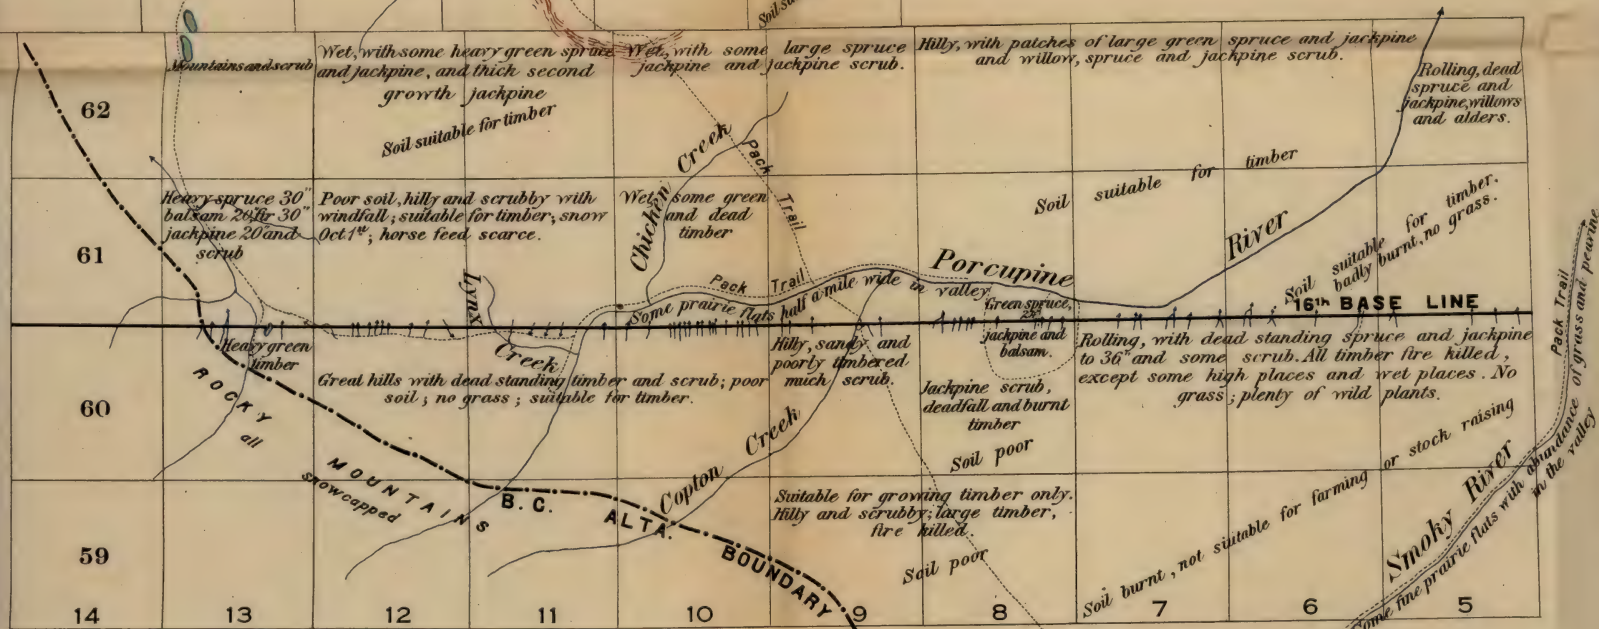 Soil su
Mountains and scrub
Wet, with some heavy green spruce
and jackpine, and thick second
growth jackpine
Soil suitable for timber
Wet, with some large spruce
jackpine and jackpine scrub.
Hilly, with patches of large green spruce and jackpine
and willow, spruce and jackpine scrub.
Rolling, dead
spruce and
jackpine, willows
and alders.
62
Heavy spruce 30"
balsam 20" fir 30"
jackpine 20" and
scrub
Poor soil, hilly and scrubby with
windfall; suitable for timber; snow
Oct 1st; horse feed scarce.
Wet, some green
and dead
timber
Chicken Creek
Pack Trail
Soil suitable for timber
61
Lynx Creek
Pack Trail
Some prairie flats half a mile wide in valley
Porcupine River
Green spruce,
jackpine and
balsam.
Soil suitable for timber.
badly burnt, no grass.
16th BASE LINE
Pack Trail
Heavy green
timber
Great hills with dead standing timber and scrub; poor
soil; no grass; suitable for timber.
Hilly, sandy and
poorly timbered
much scrub.
Jackpine scrub,
deadfall and burnt
timber
Soil poor
Rolling, with dead standing spruce and jackpine
to 36" and some scrub. All timber fire killed,
except some high places and wet places. No
grass; plenty of wild plants.
60
ROCKY MOUNTAINS
all snowcapped
Copton Creek
B.C. ALTA. BOUNDARY
Suitable for growing timber only.
Hilly and scrubby; large timber,
fire killed.
Soil poor
Soil burnt, not suitable for farming or stock raising
Smoky River
Some fine prairie flats with abundance of grass and peavine
in the valley
59
14 13 12 11 10 9 8 7 6 5